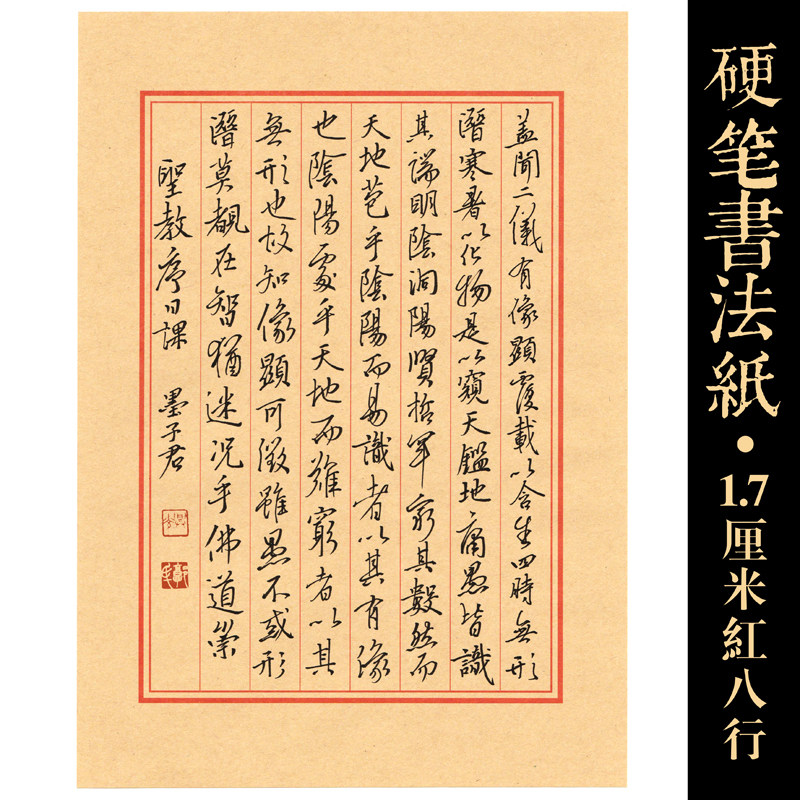 盖聞二儀有像顯覆載以含生四時無形
潛寒暑以化物是以窺天鑑地庸愚皆識
其端明陰洞陽賢哲罕窮其數然而
天地苞乎陰陽而易識者以其有像
也陰陽處乎天地而難窮者以其
無形也故知像顯可徵雖愚不惑形
潛莫覩在智猶迷況乎佛道崇
聖教序日課 墨子君
硬笔書法紙·1.7厘米紅八行